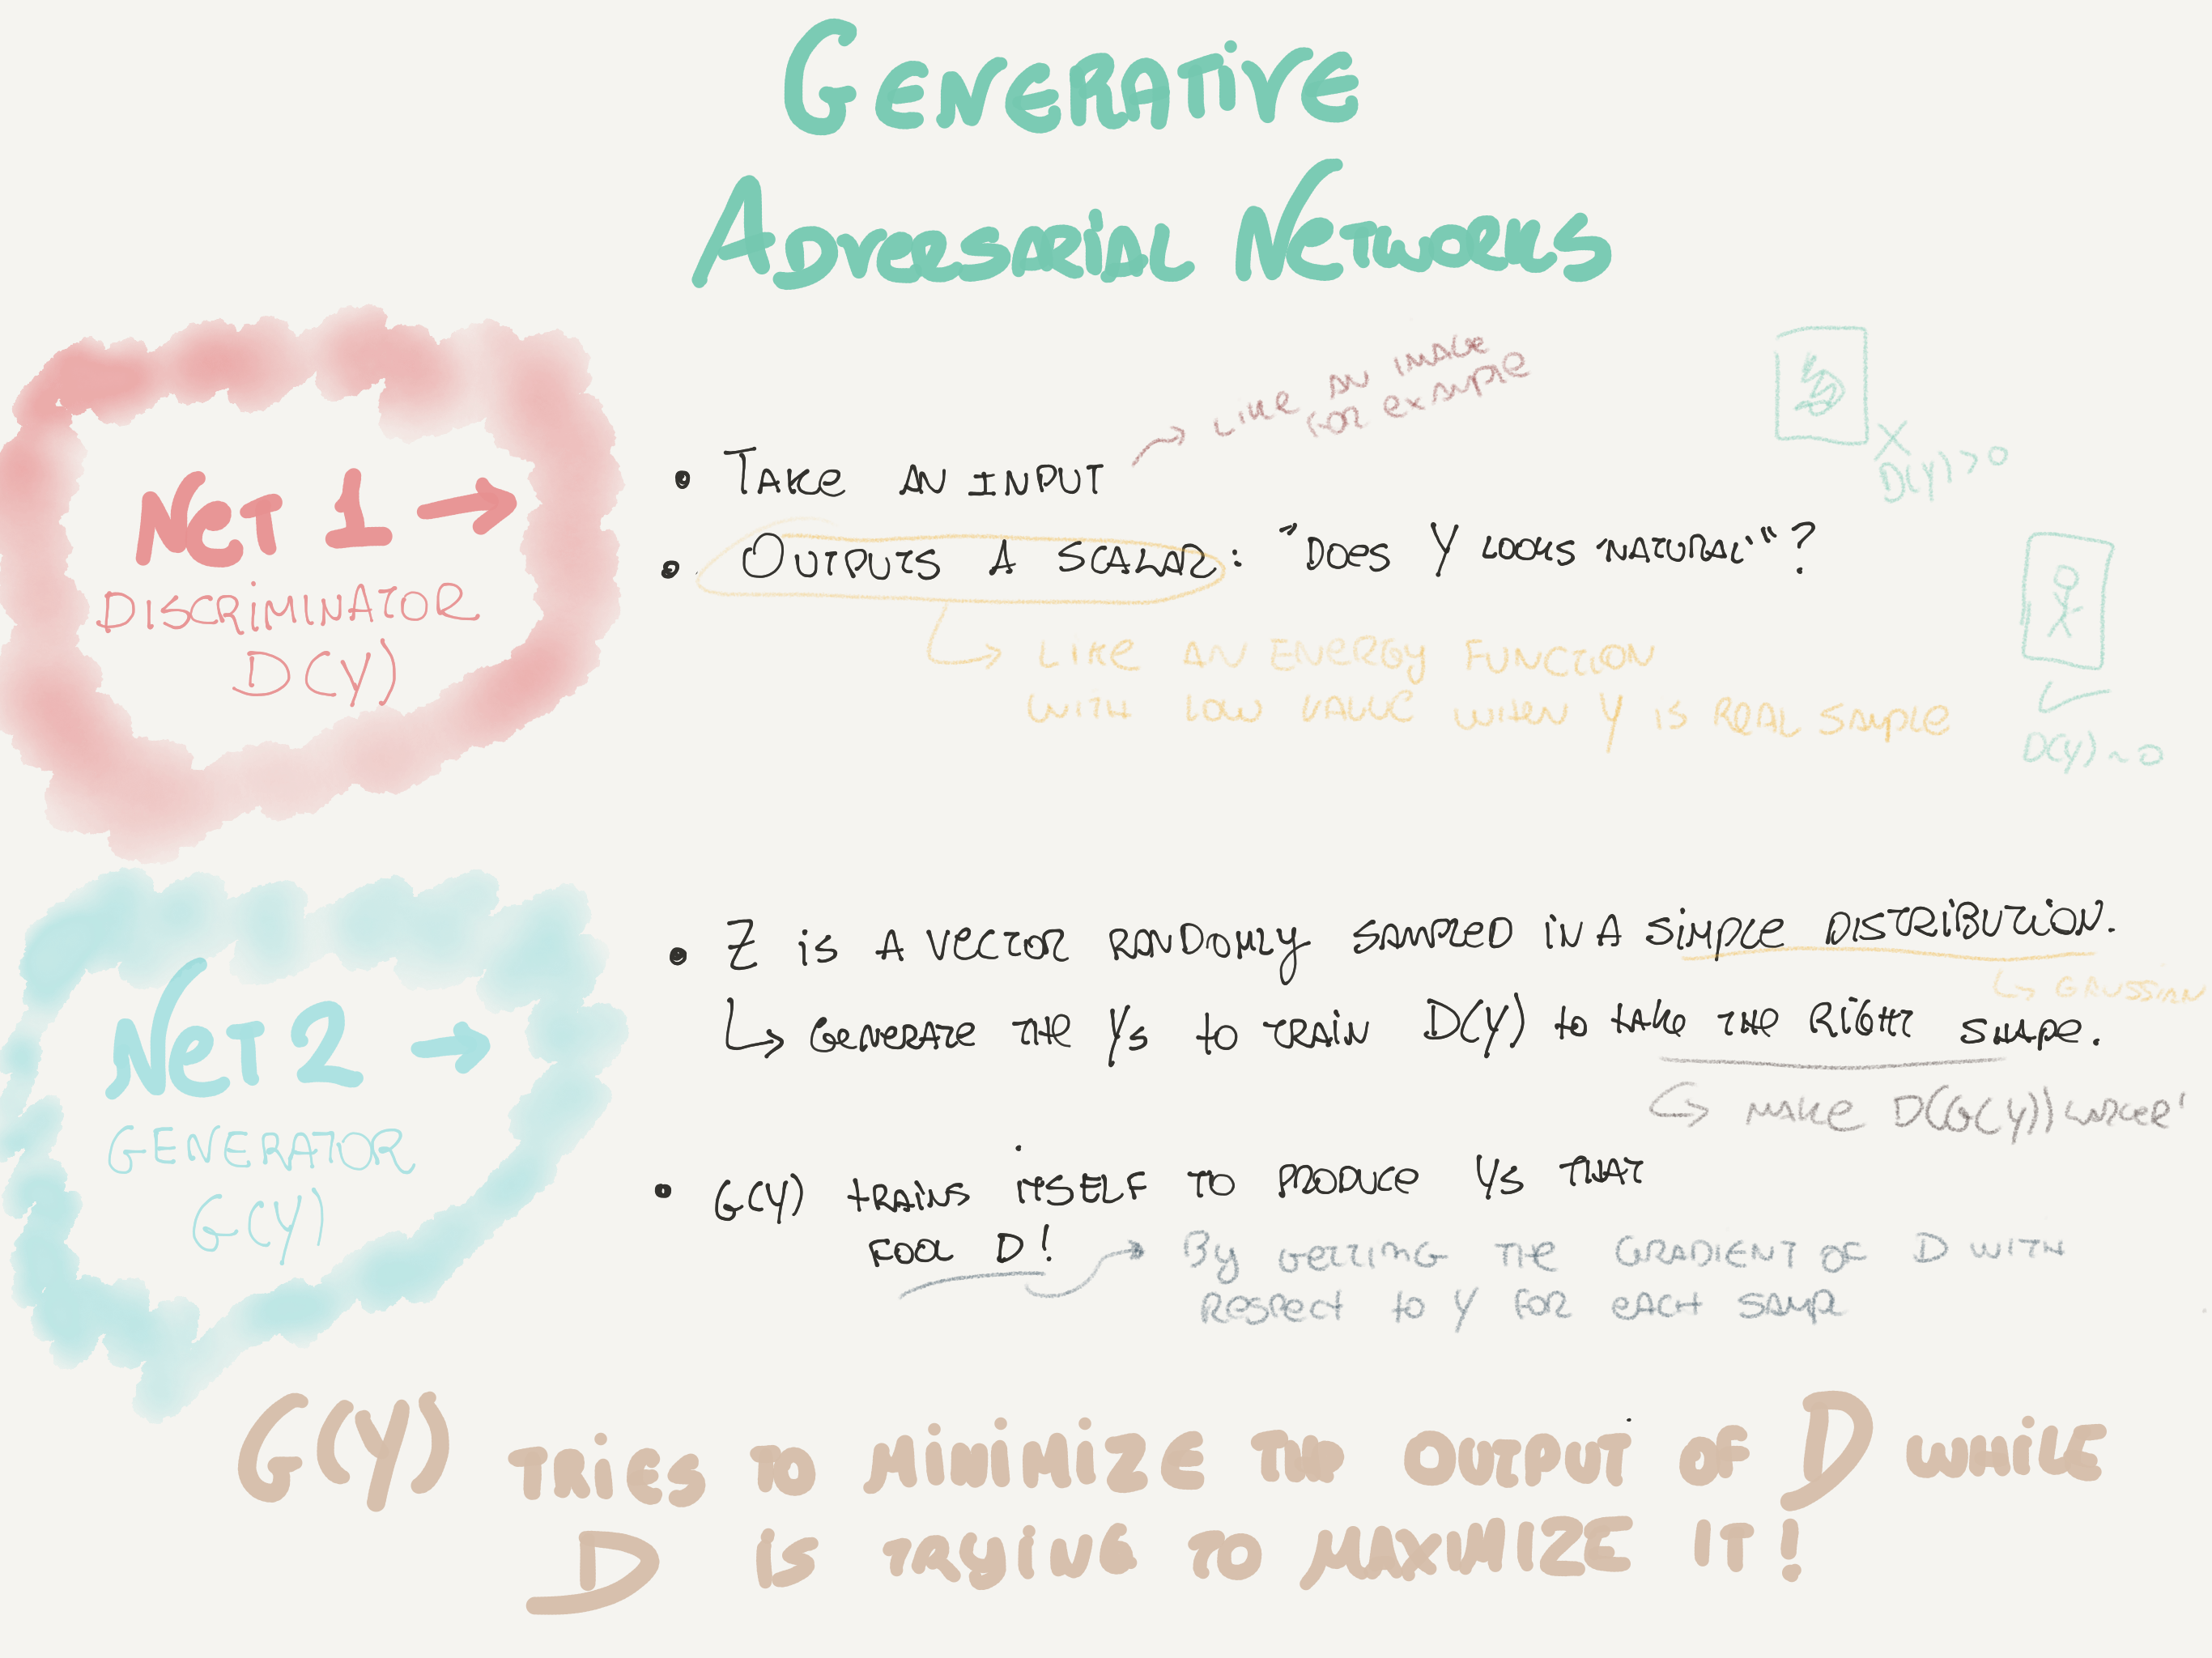 GENERATIVE
ADVERSARIAL NETWORKS
NET 1 →
DISCRIMINATOR
D(Y)
• TAKE AN INPUT
→ LIKE AN IMAGE
FOR EXAMPLE
• OUTPUTS A SCALAR: "DOES Y LOOKS "NATURAL""?
↳ LIKE AN ENERGY FUNCTION
WITH LOW VALUE WHEN Y IS REAL SAMPLE
X
D(Y) > 0
D(Y) ~ 0
NET 2 →
GENERATOR
G(Y)
• Z IS A VECTOR RANDOMLY SAMPLED IN A SIMPLE DISTRIBUTION.
↳ GAUSSIAN
↳ GENERATE THE YS TO TRAIN D(Y) TO TAKE THE RIGHT SHAPE.
↳ MAKE D(G(Y)) LARGER!
• G(Y) TRAINS ITSELF TO PRODUCE YS THAT
FOOL D!
→ BY GETTING THE GRADIENT OF D WITH
RESPECT TO Y FOR EACH
G(Y) TRIES TO MINIMIZE THE OUTPUT OF D WHILE
D IS TRYING TO MAXIMIZE IT!